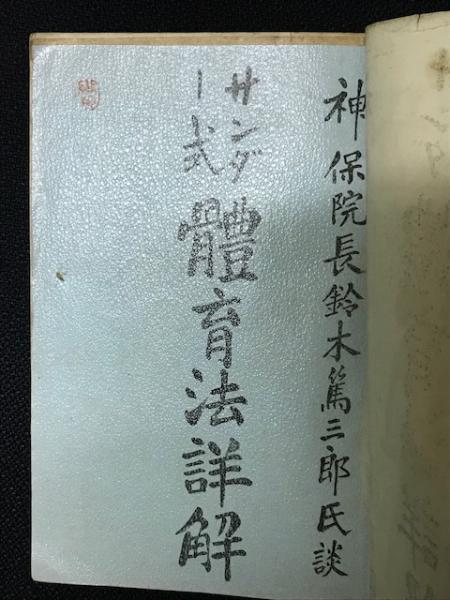 神保院長鈴木篤三郎氏談
サンダー式
體育法詳解